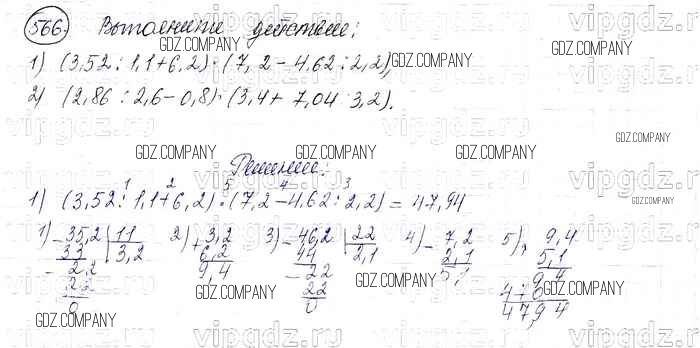 566. Выполните действие:
1) (3,52 : 1,1 + 6,2) · (7,2 − 4,62 : 2,2),
2) (2,86 : 2,6 − 0,8) · (3,4 + 7,04 : 3,2).
Решение:
1) (3,52 : 1,1 + 6,2) · (7,2 − 4,62 : 2,2) = 47,94
1 2 5 4 3
1) − 35,2 | 11 2) + 3,2 3) − 46,2 | 22 4) − 7,2 5) × 9,4
33 3,2 6,2 44 2,1 2,1 5,1
− 2,2 9,4 − 22 5,1 9 4
22 22 470
0 0 47,94
GDZ.COMPANY
GDZ.COMPANY
GDZ.COMPANY
GDZ.COMPANY
GDZ.COMPANY
GDZ.COMPANY
GDZ.COMPANY
GDZ.COMPANY
GDZ.COMPANY
GDZ.COMPANY
GDZ.COMPANY
vipgdz.ru
vipgdz.ru
vipgdz.ru
vipgdz.ru